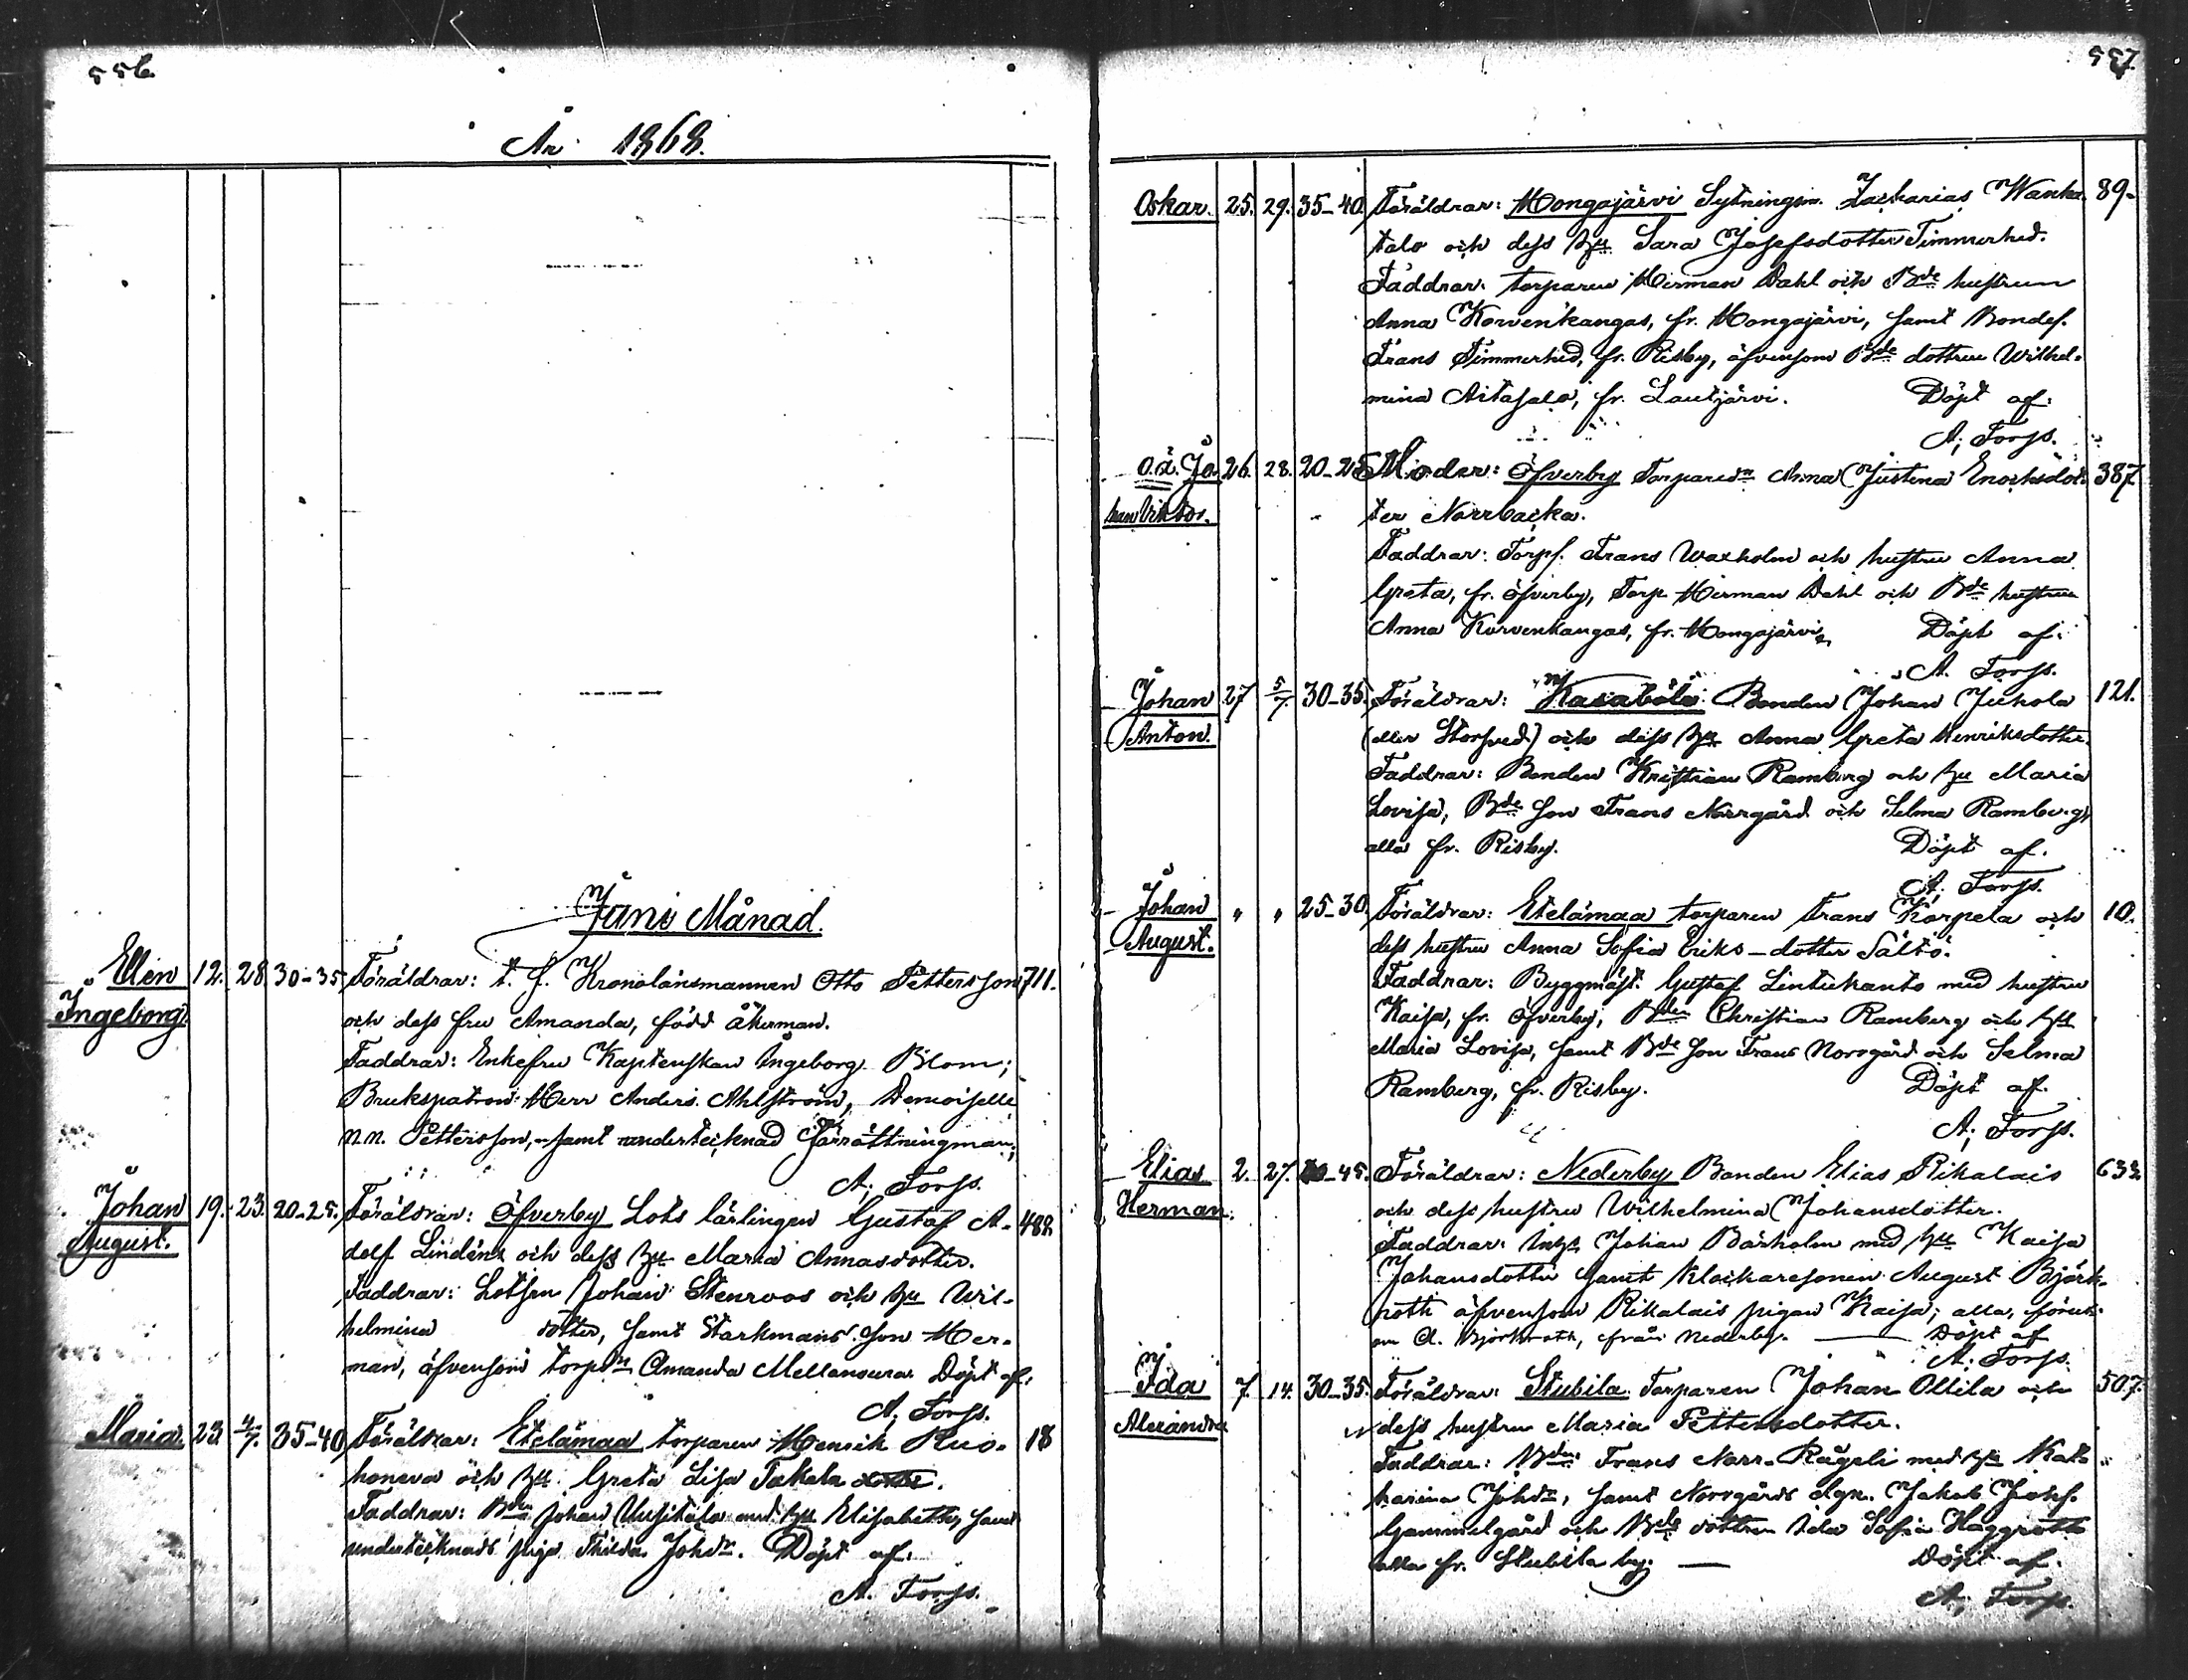 556.
År 1868.
Juni Månad.
Ellen 12. 28. 30-35 Föräldrar: t. f. Kronolänsmannen Otto Pettersson 711.
Ingeborg. och dess fru Amanda, född Åkerman.
Faddrar: Enkefru Kaptenskan Ingeborg Blom;
Brukspatron Herr Anders Ahlström, Demoiselle
n.n. Pettersson, samt undertecknad Förrättningsman;
A. Forss.
Johan 19. 23. 20-25. Föräldrar: Öfverby Lots lärlingen Gustaf A- 482
August. dolf Lindéns och dess hu Maria Annasdotter.
Faddrar: Lotsen Johan Stenroos och hu Wil-
helmina dotter, samt Starkmans son Her-
man, äfvensom torpdr Amanda Mellansura. Döpt af:
A. Forss.
Maria. 23. 4/7. 35-40 Föräldrar: Etelämaa torparen Henrik Ruo- 18
honeva och hu Greta Lisa Takala dotter.
Faddrar: Bden Johan Uusitalo med hu Elisabeth, samt
undertecknads piga Thilda Johdr. Döpt af:
A. Forss.
557.
Oskar. 25. 29. 35-40 Föräldrar: Hongajärvi Sytningsm. Zacharias Wanha 89.
talo och dess hu Sara Josefsdotter Timmerhed.
Faddrar: torparen Herman Dahl och Bde hustrun
Anna Korvenkangas, fr. Hongajärvi, samt Bondes.
Frans Timmerhed, fr. Risby, äfvensom Bde dottren Wilhel-
mina Aitasalo, fr. Lautjärvi. Döpt af:
A. Forss.
O.ä. Jo 26. 28. 20-25 Moder: Öfverby Torparedr Anna Justina Enochsdot- 387
han Viktor. ter Norrbacka.
Faddrar: Torps. Frans Waxholm och hustru Anna
Greta, fr. Öfverby, Torp. Herman Dahl och Bde hustrun
Anna Korvenkangas, fr. Hongajärvi. Döpt af:
A. Forss.
Johan 27 5/7. 30-35. Föräldrar: Kasaböle Bonden Johan Juhola 121.
Anton. (eller Storsved) och dess hu Anna Greta Henriksdotter.
Faddrar: Bonden Kristian Ramberg och hu Maria
Lovisa, Bde son Frans Norrgård och Selma Ramberg,
alla fr. Risby. Döpt af.
A. Forss.
Johan " " 25-30. Föräldrar: Etelämaa torparen Frans Korpela och 10.
August. dess hustru Anna Sofia Eriks-dotter Sältö.
Faddrar: Byggmäst. Gustaf Lintukanto med hustru
Kaisa, fr. Öfverby, Bden Christian Ramberg och hu
Maria Lovisa, samt Bde son Frans Norrgård och Selma
Ramberg, fr. Risby. Döpt af.
A. Forss.
Elias 2. 27. -45. Föräldrar: Nederby Bonden Elias Rikalais 633
Herman. och dess hustru Wilhelmina Johansdotter.
Faddrar: Johan Barholm med hu Kaisa
Johansdotter samt Klockaresonen August Björk-
roth äfvensom Rikalais pigan Kaisa; alla, förut-
om A. Björkroth, från Nederby. — Döpt af
A. Forss.
Ida 7. 14. 30-35. Föräldrar: Stubila Torparen Johan Ollila och 507.
Alexandra dess hustru Maria Pettersdotter.
Faddrar: Bden Frans Norr-Rågeli med hu Kat-
harina Johdr, samt Norrgårds Jakob Josef.
Gammelgård och Bde dottren Ida Sofia Haggroth
alla fr. Stubila by. — Döpt af.
A. Forss.